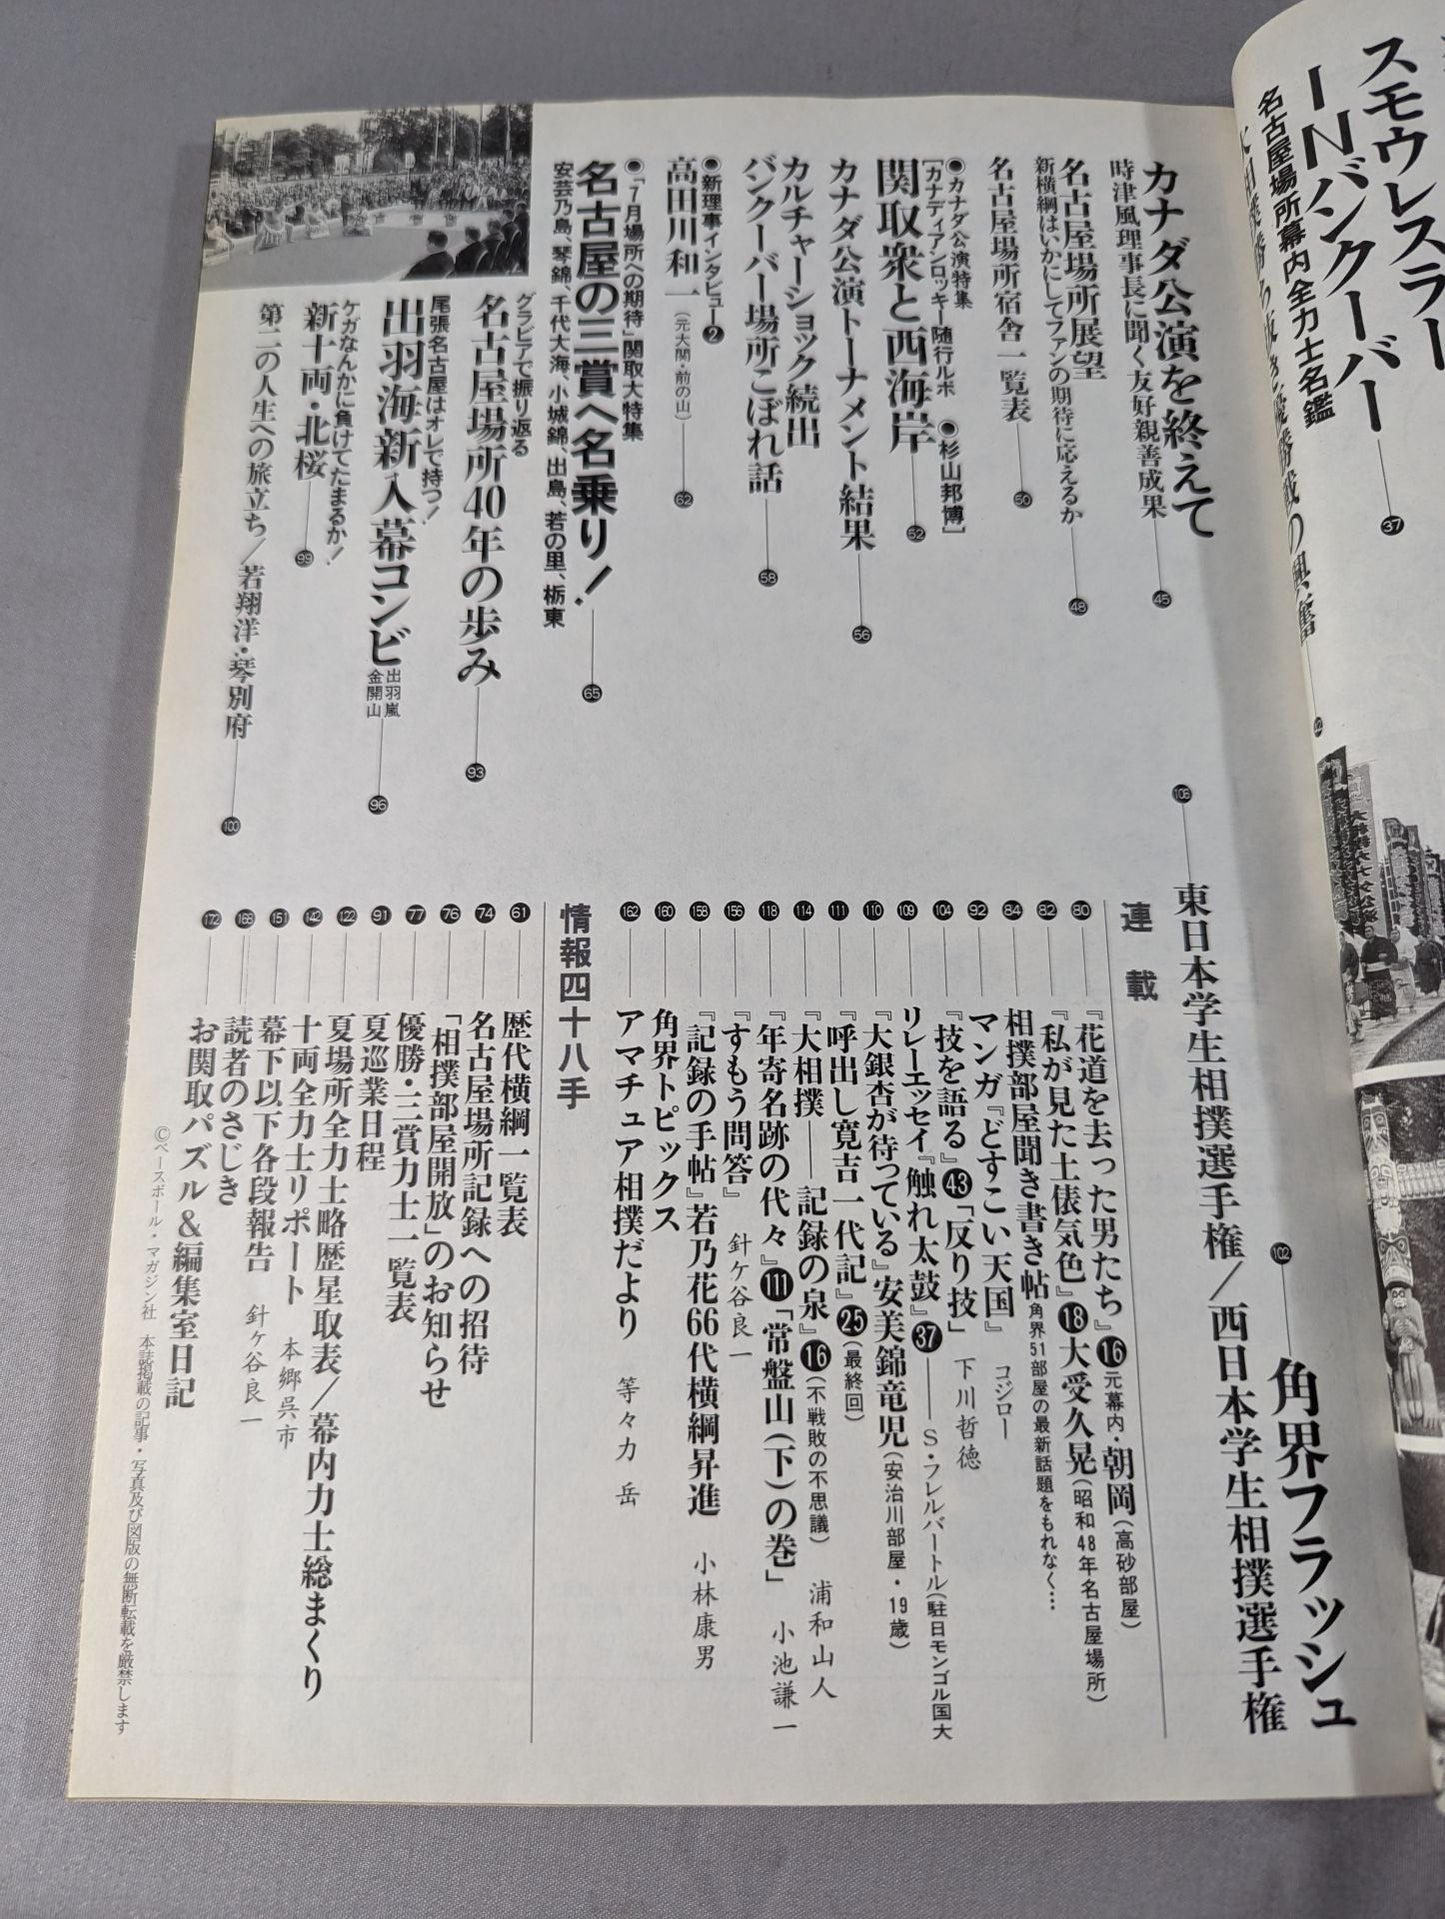 スモウレスラー
INバンクーバー
37
名古屋場所幕内全力士名鑑
カナダ公演を終えて
時津風理事長に聞く友好親善成果
45
名古屋場所展望
新横綱はいかにしてファンの期待に応えるか
48
名古屋場所宿舎一覧表
50
●カナダ公演特集
[カナディアンロッキー随行ルポ ●杉山邦博]
関取衆と西海岸
52
カナダ公演トーナメント結果
56
カルチャーショック続出
バンクーバー場所こぼれ話
58
●新理事インタビュー❷
高田川和一(元大関・前の山)
62
●「7月場所への期待」関取大特集
名古屋の三賞へ名乗り!
65
安芸乃島、琴錦、千代大海、小城錦、出島、若の里、栃東
グラビアで振り返る
名古屋場所40年の歩み
93
尾張名古屋はオレで持つ!
出羽海新入幕コンビ
出羽嵐
金開山
96
ケガなんかに負けてたまるか!
新十両・北桜
99
第二の人生への旅立ち/若翔洋・琴別府
100
102 角界フラッシュ
106 東日本学生相撲選手権/西日本学生相撲選手権
連載
80 『花道を去った男たち』⓰元幕内・朝岡(高砂部屋)
82 『私が見た土俵気色』⓲大受久晃(昭和48年名古屋場所)
84 相撲部屋聞き書き帖 角界51部屋の最新話題をもれなく…
92 マンガ『どすこい天国』 コジロー
104 『技を語る』43「反り技」 下川哲徳
109 リレーエッセイ『触れ太鼓』37――S・フレルバートル(駐日モンゴル国大
110 『大銀杏が待っている』安美錦竜児(安治川部屋・19歳)
111 『呼出し寛吉一代記』25(最終回)
114 『大相撲――記録の泉』⓰(不戦敗の不思議) 浦和山人
118 『年寄名跡の代々』111「常盤山(下)の巻」 小池謙一
156 『すもう問答』 針ケ谷良一
158 『記録の手帖』若乃花66代横綱昇進 小林康男
160 角界トピックス
162 アマチュア相撲だより 等々力 岳
情報四十八手
61 歴代横綱一覧表
74 名古屋場所記録への招待
76 「相撲部屋開放」のお知らせ
77 優勝・三賞力士一覧表
91 夏巡業日程
122 夏場所全力士略歴星取表/幕内力士総まくり
142 十両全力士リポート 本郷呉市
151 幕下以下各段報告 針ケ谷良一
168 読者のさじき
172 お関取パズル&編集室日記
©ベースボール・マガジン社 本誌掲載の記事・写真及び図版の無断転載を厳禁します